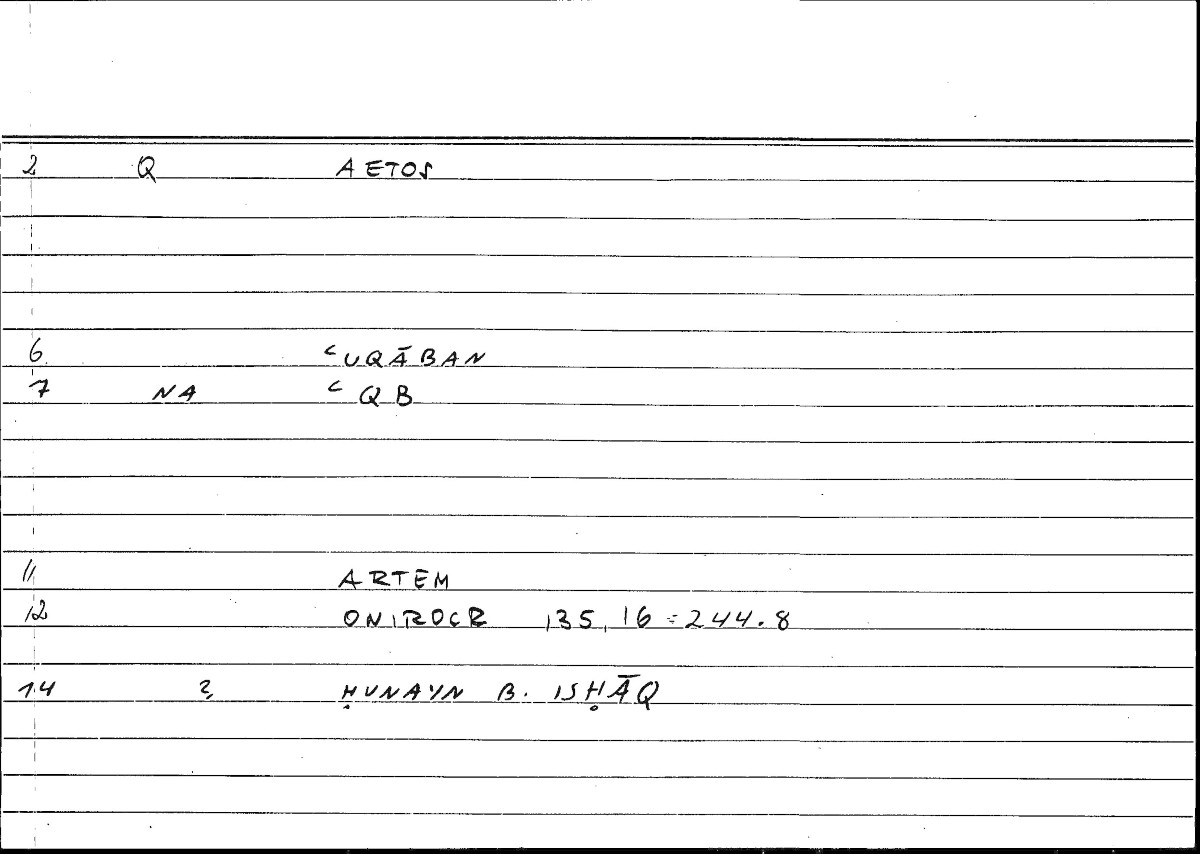 2 Q AETOS
6 ʿUQĀBAN
7 NA ʿQB
11 ARTEM
12 ONIROCR 135,16 = 244.8
14 2 ḤUNAYN B. ISḤĀQ